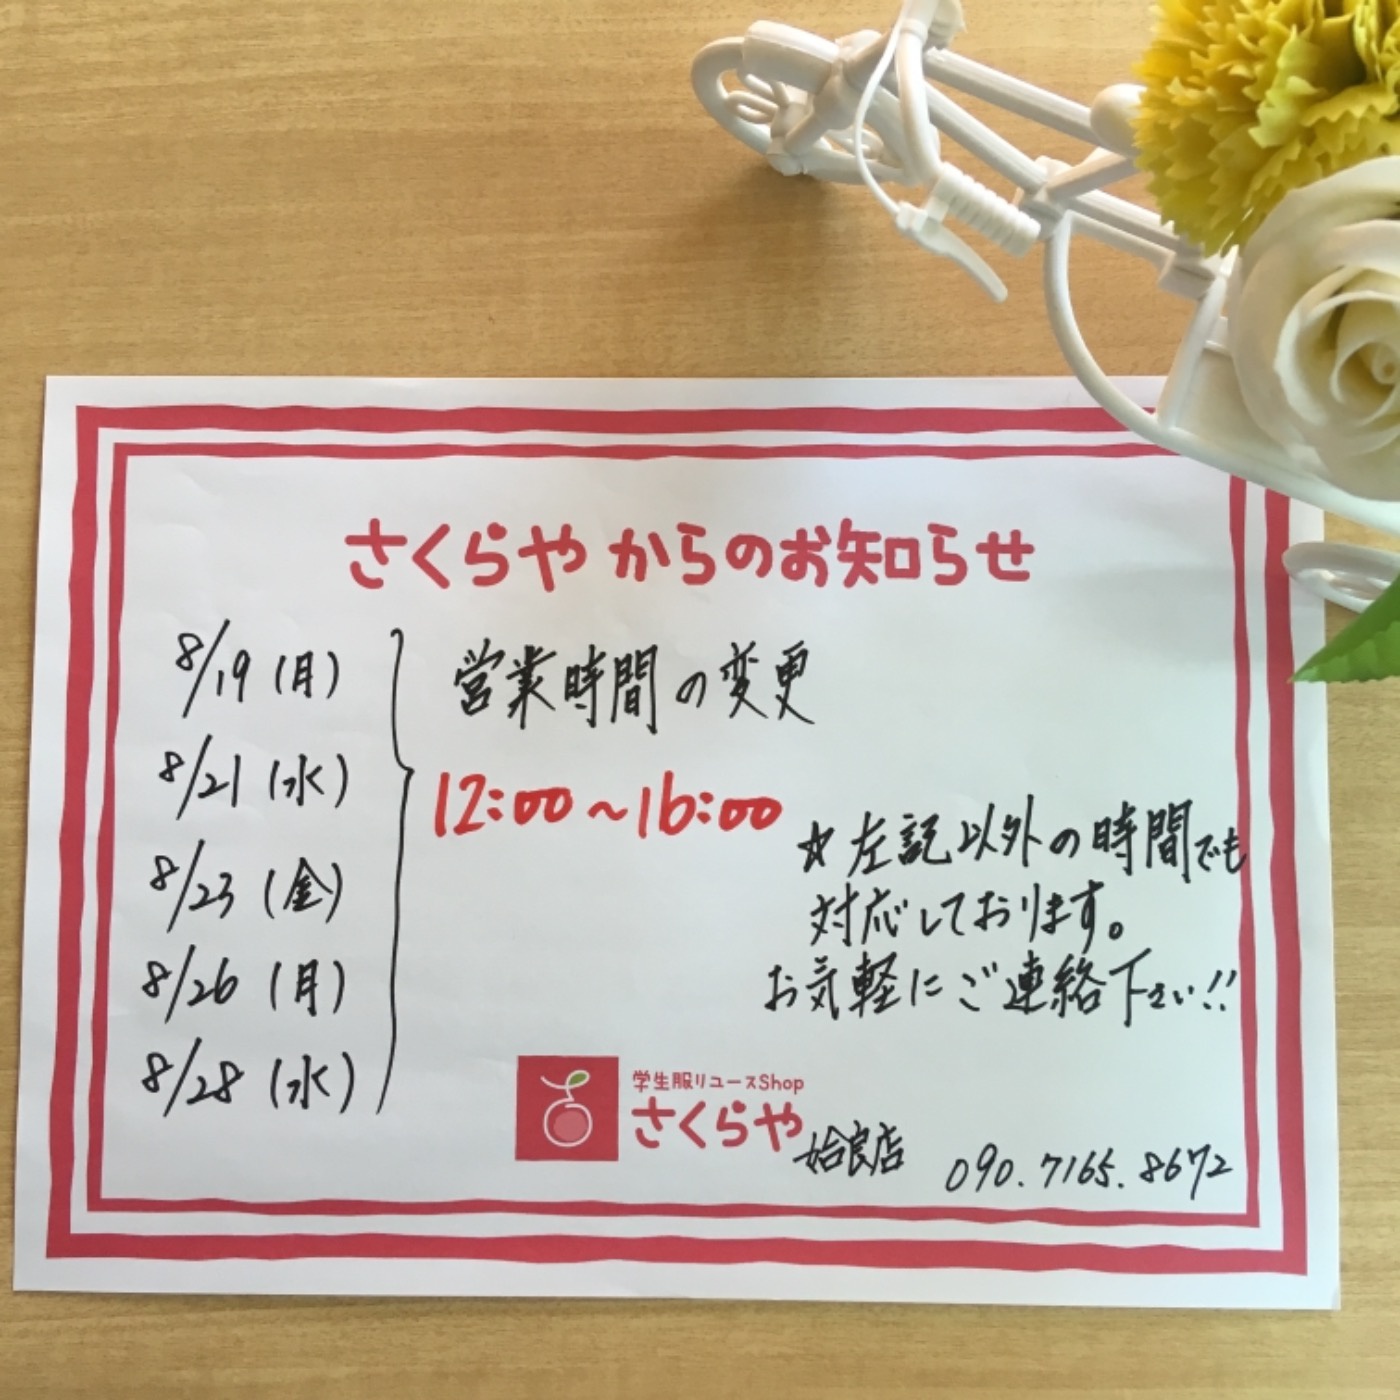 さくらや からのお知らせ
8/19 (月)
8/21 (水)
8/23 (金)
8/26 (月)
8/28 (水)
営業時間の変更
12:00～16:00
☆左記以外の時間でも
対応しております。
お気軽にご連絡下さい!!
学生服リユースShop
さくらや 姶良店 090.7165.8672